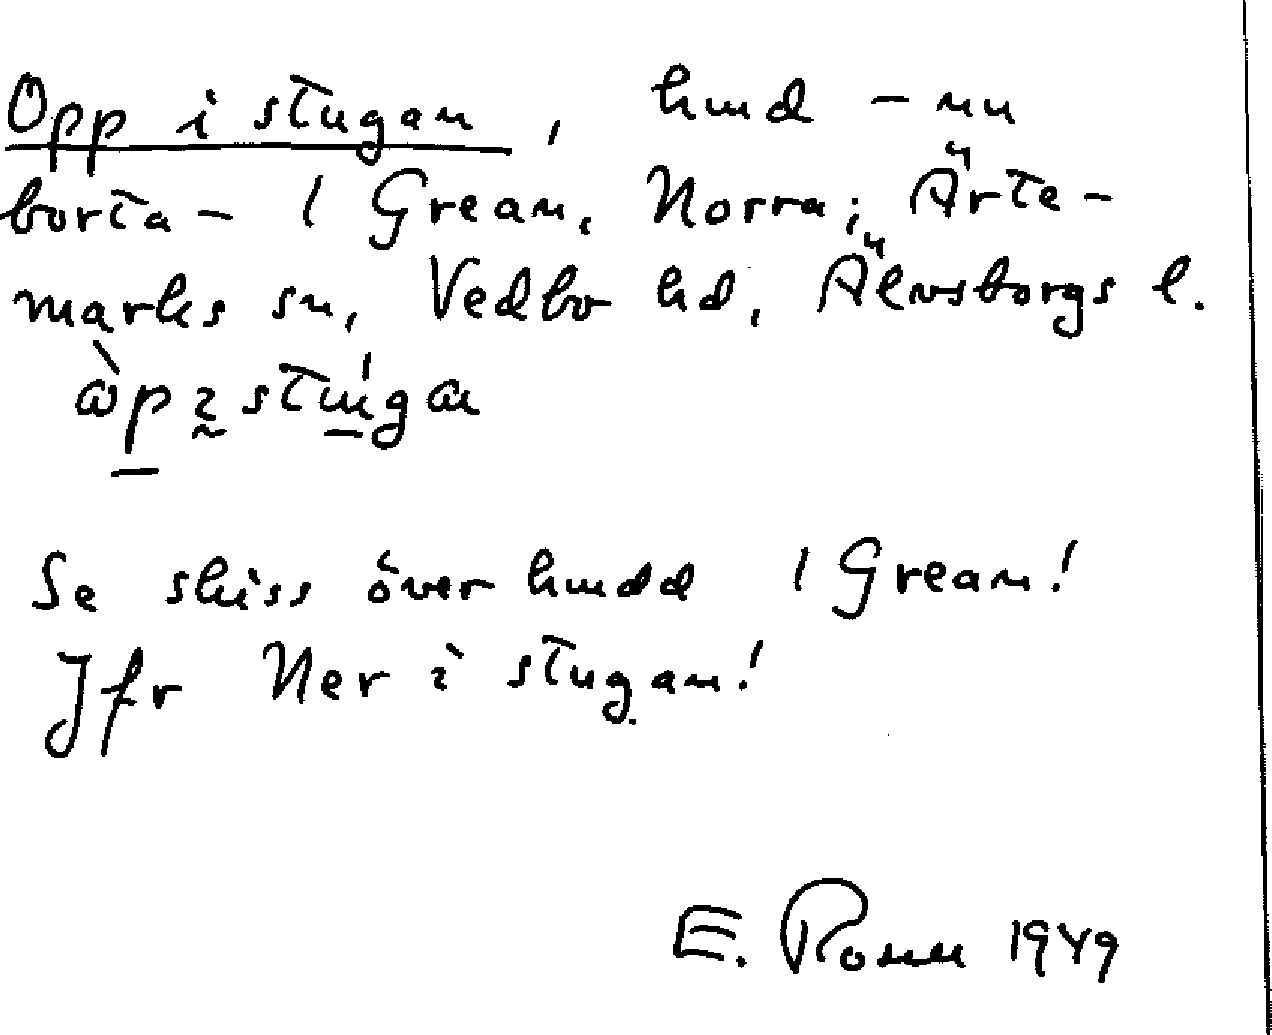 Opp i stugan, hmd - nu
borta - 1 Grean, Norra; Ärte-
marks sn, Vedbo hd, Älvsborgs l.
Se skiss över hmdd 1 Grean!
Jfr Ner i stugan!
E. Romm 1949